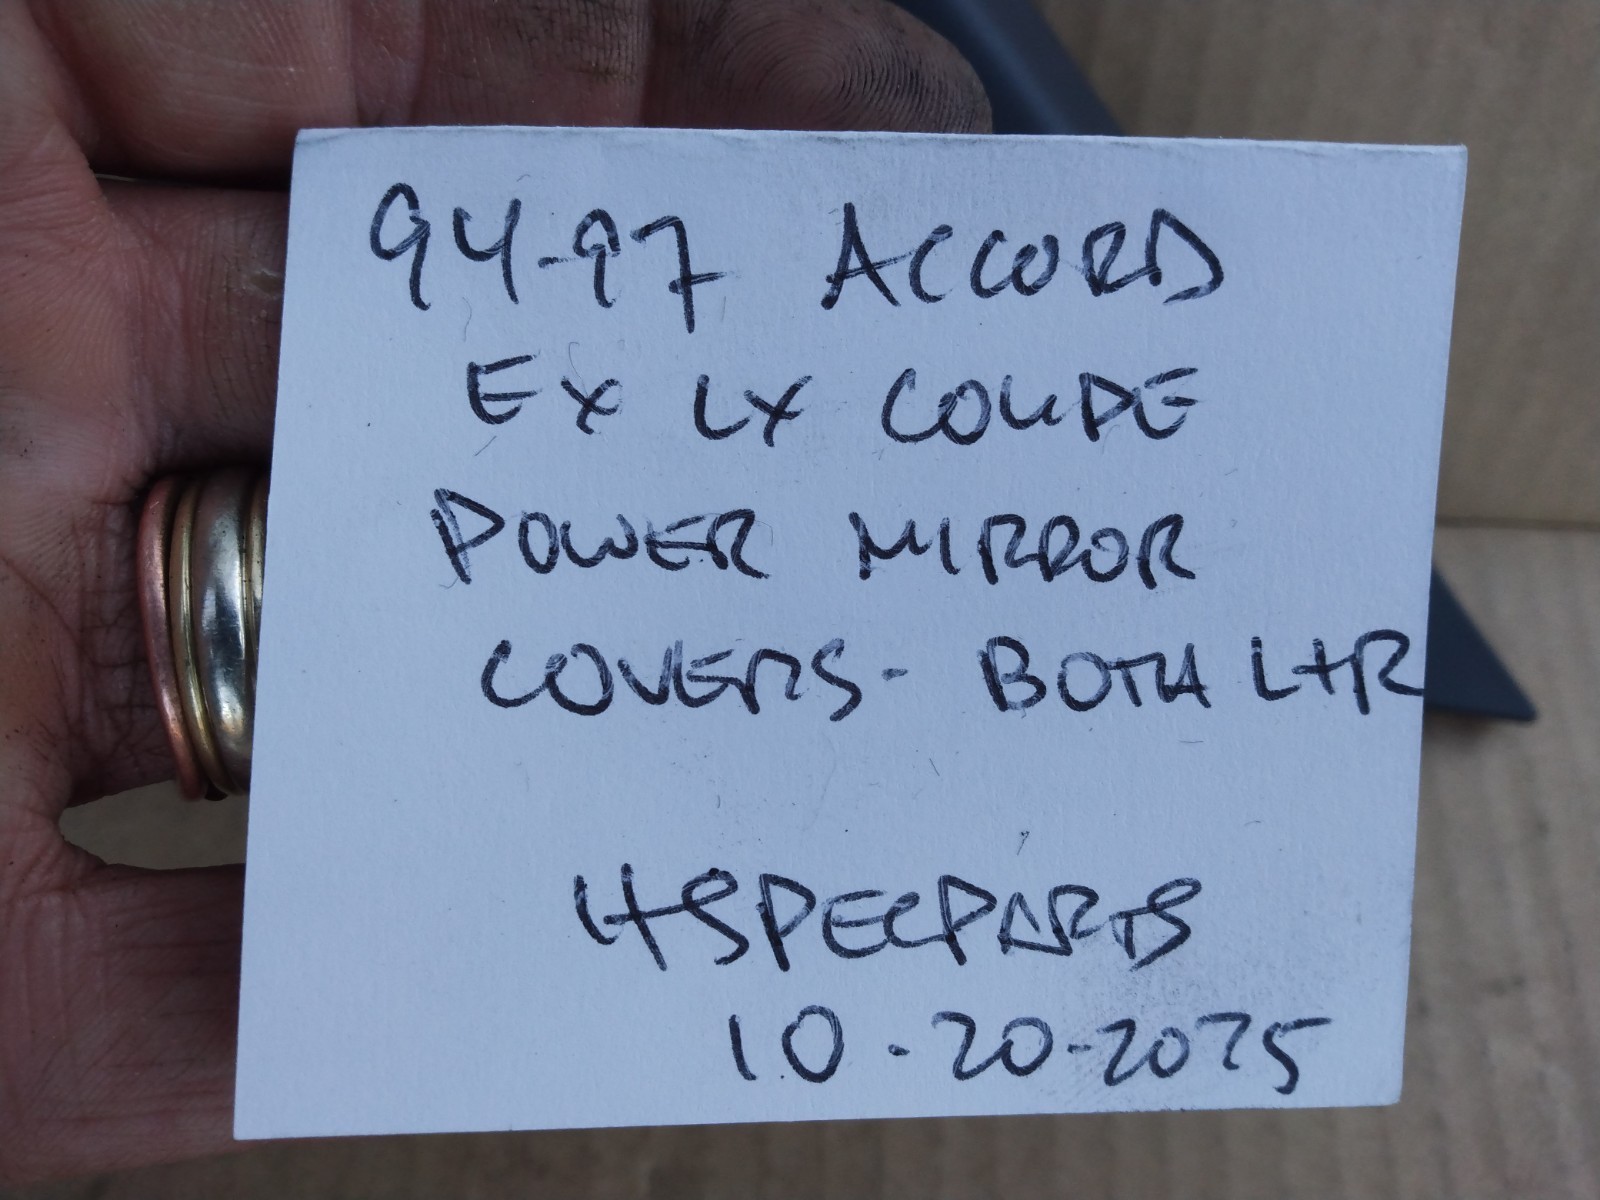 94-97 ACCORD
EX LX COUPE
POWER MIRROR
COVERS- BOTH L+R
HSPECPARTS
10-20-2025